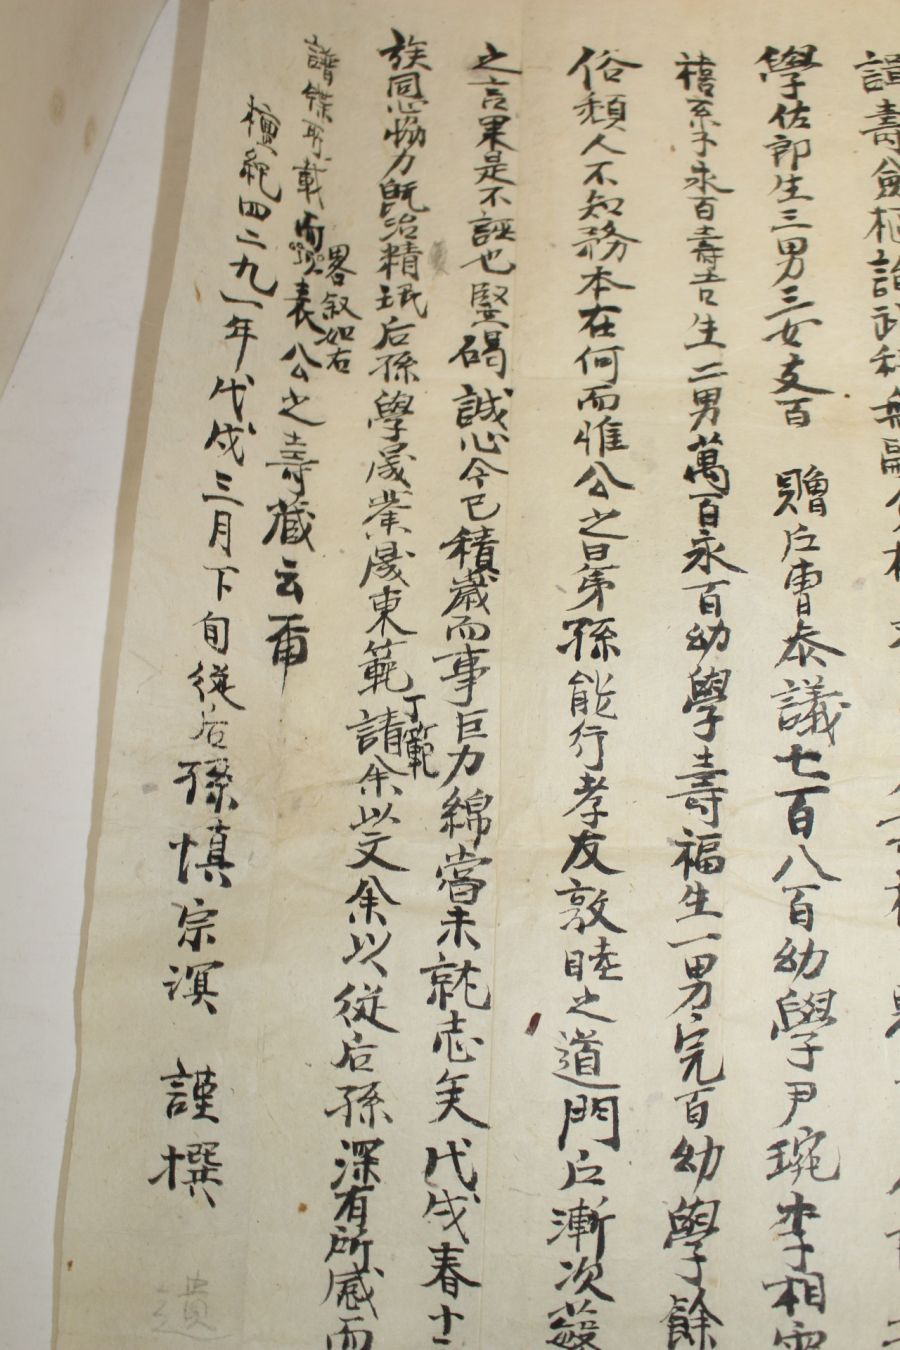 諿壽僉樞諿武科無嗣
學佐郎生三男三女支百 贈戶曹泰議七百八百幼學尹琬李相
禧系子永百壽吉生二男萬百永百幼學壽福生一男完百幼學餘
俗頹人不知務本在何而惟公之昆弟孫能行孝友敦睦之道門戶漸次蕟
之言果是不誣也竪碣誠心今已積歲而事巨力綿當未就志矣戊戌春十
族同心恊力旣治精珉后孫學晟業晟東範請余以文余以從后孫深有所感而
丁範
譜牒所載 表公之壽藏云甭
畧叙如右
檀紀四二九一年戊戌三月下旬從后孫慎宗滨 謹撰
遺